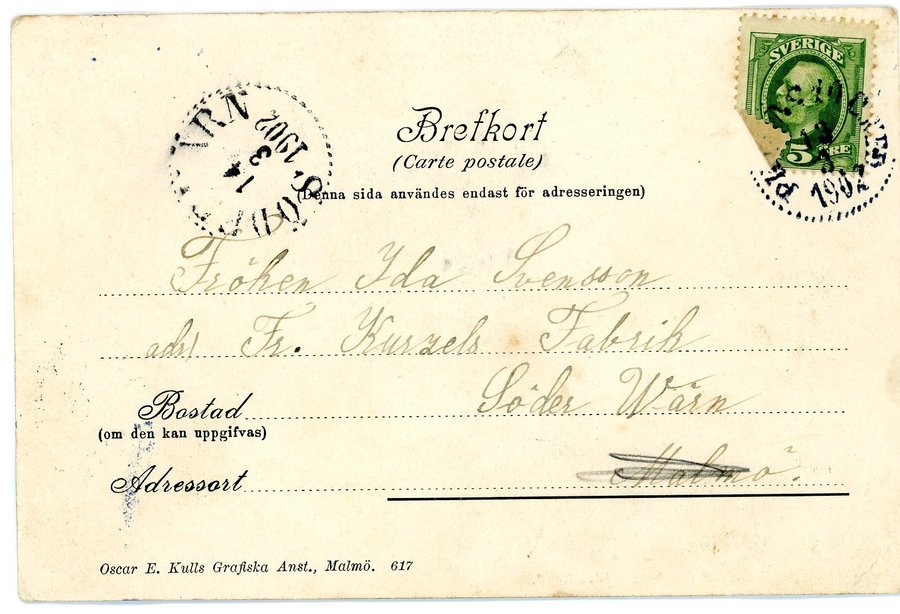 SVERIGE
5 ÖRE
1902
WÄRN
1
3
1902
Brefkort
(Carte postale)
(Denna sida användes endast för adresseringen)
Fröken Ida Svensson
adr/ Fr. Kurzels Fabrik
Bostad Söder Wärn
(om den kan uppgifvas)
Adressort Malmö.
Oscar E. Kulls Grafiska Anst., Malmö. 617